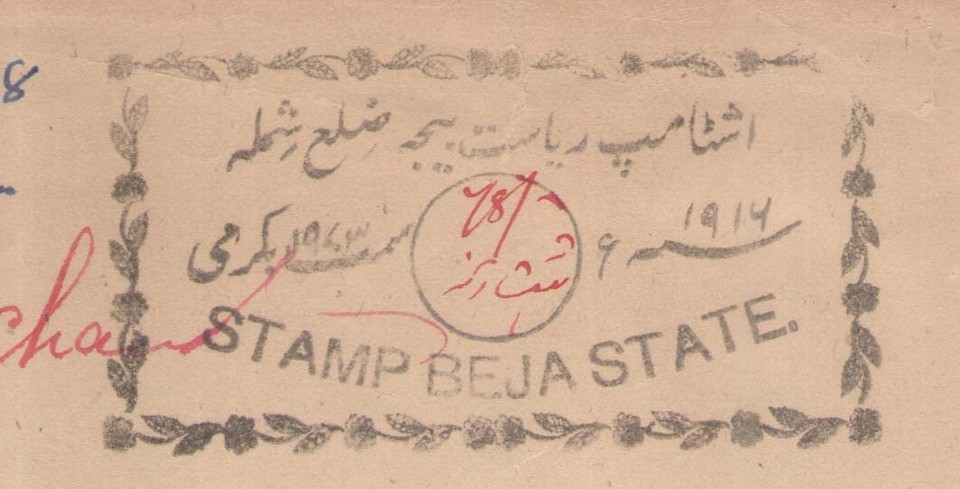 8
اشٹامپ ریاست بیجہ ضلع شملہ
سنہ ۱۹۱۶ ء
سمت ۱۹۷۳ بکرمی
/8/-
ہشت آنہ
STAMP BEJA STATE.